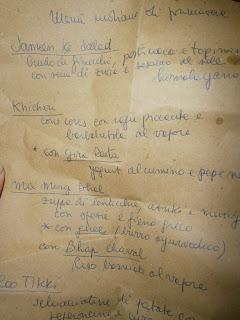 Menù indiano di primavera
Jameen Ke Salad
crudo di finocchi, pastinaca e topinambur
con semi di zucca e sesamo al sale
Khichuri
con ceus con ragù piccante e
barbabietole al vapore
* con gira Raita
yogurt al cumino e pepe nero
Mix Mung Dhal
zuppa di lenticchie, azuki e mung
con spezie e fieno greco
* con ghee (burro ayurvedico)
con Bhap chaval
riso basmati al vapore
Aloo Tikki
di patate con